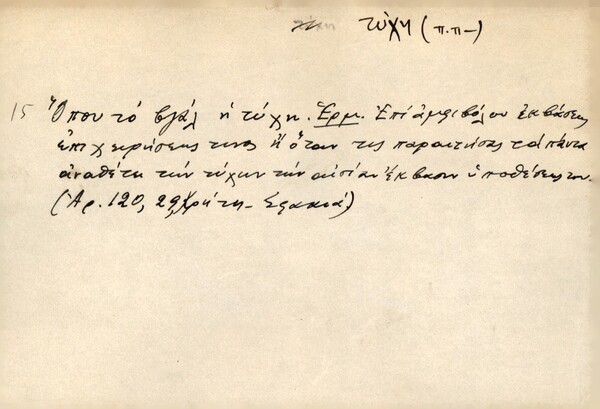 τύχη
τύχη (π.π–)
15 Ὅπου τὸ βγάλ ἡ τύχη. Ἑρμ. Ἐπὶ ἀμφιβόλου ἐκβάσεως
ἐπιχειρήσεώς τινος ἢ ὅταν τις παραιτήσας τὰ πάντα
ἀναθέτῃ τὴν τύχην τὴν αἰσίαν ἔκβασιν ὑποθέσεώς του.
(Ἀρ. 120, 29, Κρήτη – Σφακιά)